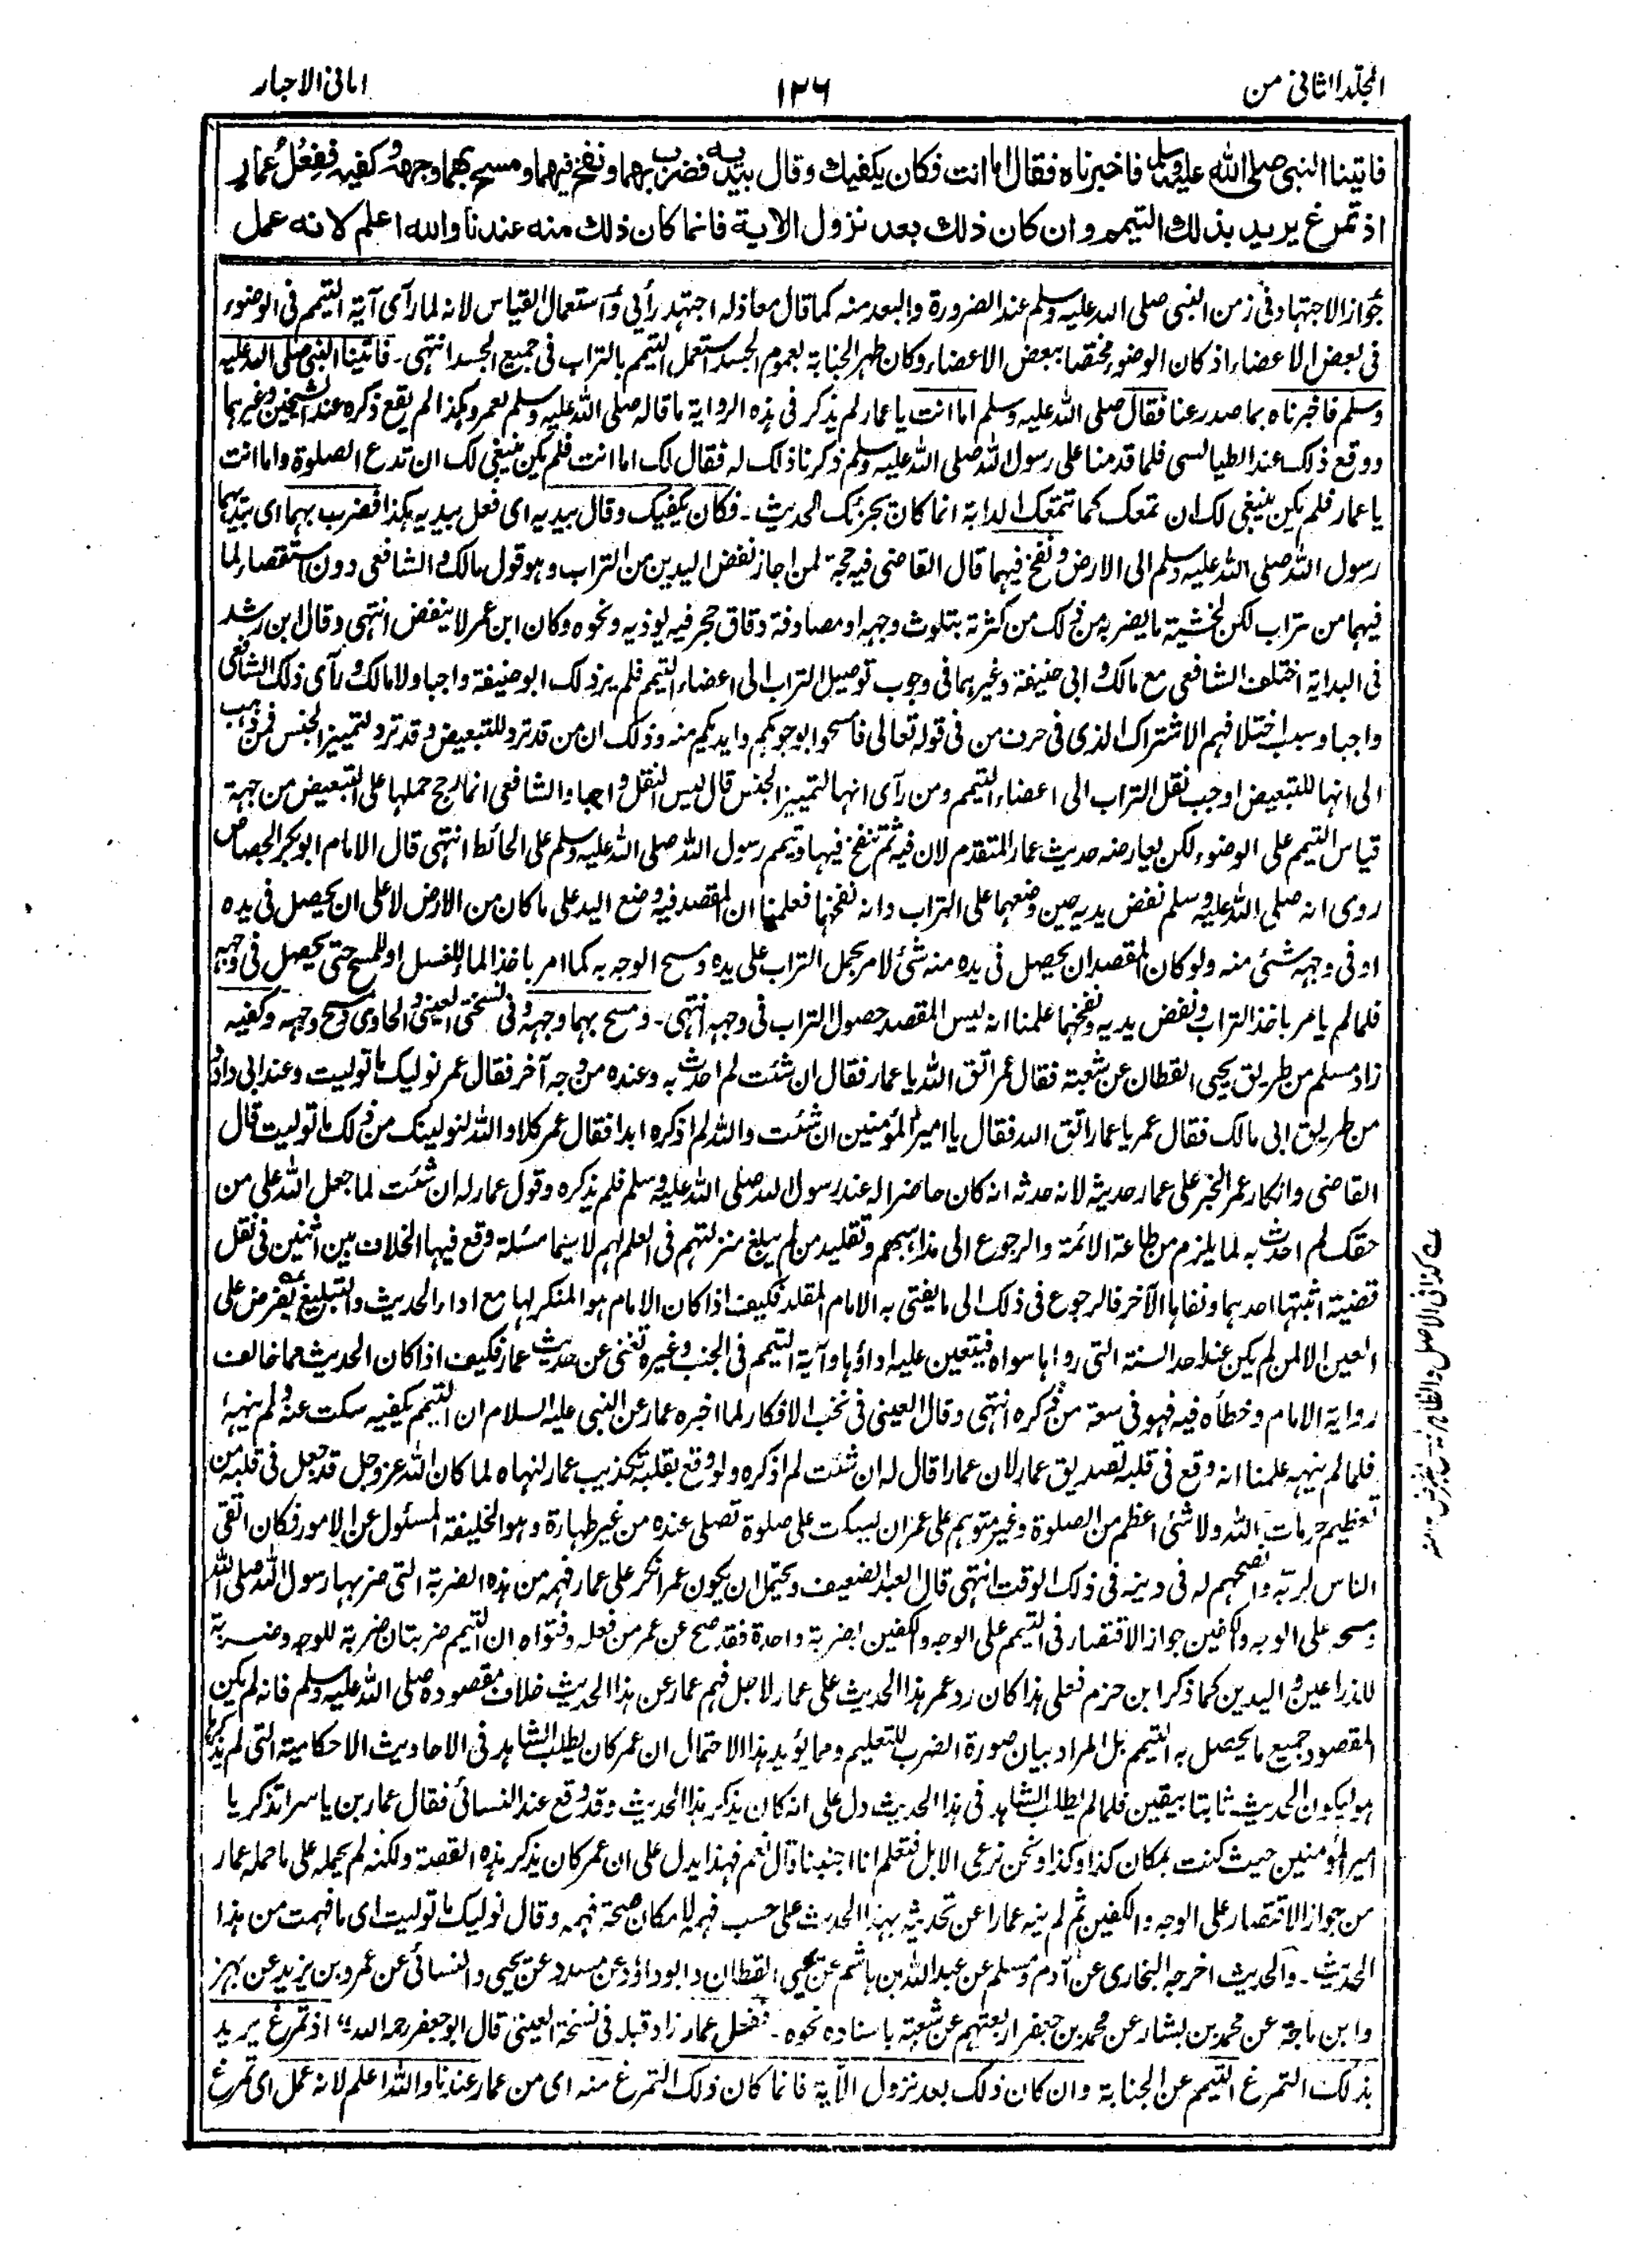 المجلد الثانی من
١٢٦
امانی الاحبار
فاتینا النبی صلی الله علیه وسلم فاخبرناه فقال اما انت فکان یکفیك وقال بیدیه فضرب بهما ونفخ فیهما ومسح بهما وجهه وکفیه ففعل عمار
اذ تمرغ یرید بذلك التیمم وان کان ذلك بعد نزول الاٰیة فانما کان ذلك منه عندنا والله اعلم لانه عمل
جواز الاجتهاد فی زمن النبی صلی الله علیه وسلم عند الضرورة والبعد منه کما قال معاذ له اجتهد رأیی واستعمال القیاس لانه لما رآی آیة التیمم فی الوضوء
فی بعض الاعضاء اذ کان الوضوء مختصا ببعض الاعضاء وکان طهر الجنابة بعموم الجسد استعمل التیمم بالتراب فی جمیع الجسد انتهی۔ فاتینا النبی صلی الله علیه
وسلم فاخبرناه بما صدر عنا فقال صلی الله علیه وسلم اما انت یا عمار لم یذکر فی هذه الروایة ما قاله صلی الله علیه وسلم لعمر وکهذا لم یقع ذکره عند الشیخین وغیرهما
ووقع ذلک عند الطیالسی فلما قدمنا علی رسول الله صلی الله علیه وسلم ذکرنا ذلک له فقال لک اما انت فلم یکن ینبغی لک ان تدع الصلوة واما انت
یا عمار فلم یکن ینبغی لک ان تمعک کما تتمعک الدابة انما کان یجزئک الحدیث۔ فکان یکفیک وقال بیدیه ای فعل بیدیه هکذا فضرب بهما ای بیدیهما
رسول الله صلی الله علیه وسلم الی الارض ونفخ فیهما قال القاضی فیه حجة لمن اجاز نفض الیدین من التراب وهو قول مالک والشافعی دون استقصاء لما
فیهما من تراب لکن لخشیة ما یضر به من ذلک من کثرته بتلوث وجهه او مصادفة دقاق حجر فیه یوذیه ونحوه وکان ابن عمر لا ینفض انتهی وقال ابن رشد
فی البدایة اختلف الشافعی مع مالک وابی حنیفة وغیرهما فی وجوب توصیل التراب الی اعضاء التیمم فلم یر ذلک ابو حنیفة واجبا ولا مالک ورآی ذلک الشافعی
واجبا وسبب اختلافهم الاشتراک الذی فی حرف من فی قوله تعالی فامسحوا بوجوهکم وایدیکم منه وذلک ان من قد ترد للتبعیض وقد ترد لتمییز الجنس فمن ذهب
الی انها للتبعیض اوجب نقل التراب الی اعضاء التیمم ومن رآی انها لتمییز الجنس قال لیس النقل واجبا والشافعی انما رجح حملها علی التبعیض من جهة
قیاس التیمم علی الوضوء لکن یعارضه حدیث عمار المتقدم لان فیه ثم تنفخ فیها وتیمم رسول الله صلی الله علیه وسلم علی الحائط انتهی قال الامام ابو بکر الجصاص
روی انه صلی الله علیه وسلم نفض یدیه حین وضعهما علی التراب وانه نفخهما فعلمنا ان المقصد فیه وضع الید علی ما کان من الارض لا علی ان یحصل فی یده
او فی وجهه شئی منه ولو کان المقصد ان یحصل فی یده منه شئ لامر بحمل التراب علی یده ومسح الوجه به کما امر باخذ الماء للغسل او للمسح حتی یحصل فی وجهه
فلما لم یامر باخذ التراب ونفض یدیه ونفخهما علمنا انه لیس المقصد حصول التراب فی وجهه انتهی۔ ومسح بهما وجهه وفی نسختی العینی والحاوی مسح وجهه وکفیه
زاد مسلم من طریق یحیی القطان عن شعبة فقال عمر اتق الله یا عمار فقال ان شئت لم احدث به وعنده من وجه آخر فقال عمر نولیک ما تولیت وعند ابی داؤد
من طریق ابی مالک فقال عمر یا عمار اتق الله فقال یا امیر المؤمنین ان شئت والله لم اذکره ابدا فقال عمر کلا والله لنولینک من ذلک ما تولیت قال
القاضی وانکار عمر الخبر علی عمار حدیثه لانه حدثه انه کان حاضرا له عند رسول الله صلی الله علیه وسلم فلم یذکره وقول عمار له ان شئت لما جعل الله علی من
حقک لم احدث به لما یلزم من طاعة الائمة والرجوع الی مذاهبهم وتقلید من لم یبلغ منزلتهم فی العلم لهم لا سیما مسئلة وقع فیها الخلاف بین اثنین فی نقل
قضیة اثبتها احدهما ونفاها الآخر فالرجوع فی ذلک الی ما یفتی به الامام المقلد فکیف اذا کان الامام هو المنکر لها مع اداء الحدیث والتبلیغ یفرض علی
العین الا لمن لم یکن عند احد السنة التی رواها سواه فیتعین علیه اداؤها وآیة التیمم فی الجنب وغیره تغنی عن حدیث عمار فکیف اذا کان الحدیث مما خالف
روایة الامام وخطأه فیه فهو فی سعة من ذکره انتهی وقال العینی فی نخب الافکار لما اخبره عمار عن النبی علیه السلام ان التیمم یکفیه سکت عنه ولم ینهه
فلما لم ینهه علمنا انه وقع فی قلبه تصدیق عمار لان عمارا قال له ان شئت لم اذکره ولو وقع بقلبه تکذیب عمار لنهاه لما کان الله عز وجل قد جعل فی قلبه من
تعظیم حرمات الله ولا شئ اعظم من الصلوة وغیر متوهم علی عمر ان یسکت علی صلوة تصلی عنده من غیر طهارة وهو الخلیفة المسئول عن الامور فکان اتقی
الناس لربه وانصحهم له فی دینه فی ذلک الوقت انتهی قال العبد الضعیف ویحتمل ان یکون عمر انکر علی عمار فهمه من هذه الضربة التی ضربها رسول الله صلی الله
ومسحه علی الوجه والکفین جواز الاقتصار فی التیمم علی الوجه والکفین بضربة واحدة فقد صح عن عمر من فعله وفتواه ان التیمم ضربتان ضربة للوجه وضربة
للذراعین والیدین کما ذکر ابن حزم فعلی هذا کان رد عمر هذا الحدیث علی عمار لاجل فهم عمار عن هذا الحدیث خلاف مقصوده صلی الله علیه وسلم فانه لم یکن
المقصود جمیع ما یحصل به التیمم بل المراد بیان صورة الضرب للتعلیم ومما یؤید هذا الاحتمال ان عمر کان یطلب الشاهد فی الاحادیث الاحکامیة التی لم یذکرها
هو لیکون الحدیث ثابتا بیقین فلما لم یطلب الشاهد فی هذا الحدیث دل علی انه کان یذکر هذا الحدیث وقد وقع عند النسائی فقال عمار بن یاسر اتذکر یا
امیر المؤمنین حیث کنت بمکان کذا وکذا ونحن نرعی الابل فتعلم انا اجنبنا قال نعم فهذا یدل علی ان عمر کان یذکر هذه القصة ولکنه لم یحمله علی ما حمله عمار
من جواز الاقتصار علی الوجه والکفین ثم لم ینه عمارا عن تحدیثه بهذا الحدیث علی حسب فهمه لامکان صحة فهمه وقال نولیک ما تولیت ای ما فهمت من هذا
الحدیث۔ والحدیث اخرجه البخاری عن آدم ومسلم عن عبدالله بن هاشم عن یحیی القطان وابو داؤد عن مسدد عن یحیی والنسائی عن عمرو بن یزید عن بهز
وابن ماجة عن محمد بن بشار عن محمد بن جعفر اربعتهم عن شعبة باسناده نحوه۔ ففعل عمار زاد قبله فی نسخة العینی قال ابو جعفر رحمه الله" اذ تمرغ یرید
بذلک التمرغ التیمم عن الجنابة وان کان ذلک بعد نزول الآیة فانما کان ذلک التمرغ منه ای من عمار عندنا والله اعلم لانه عمل ای تمرغ